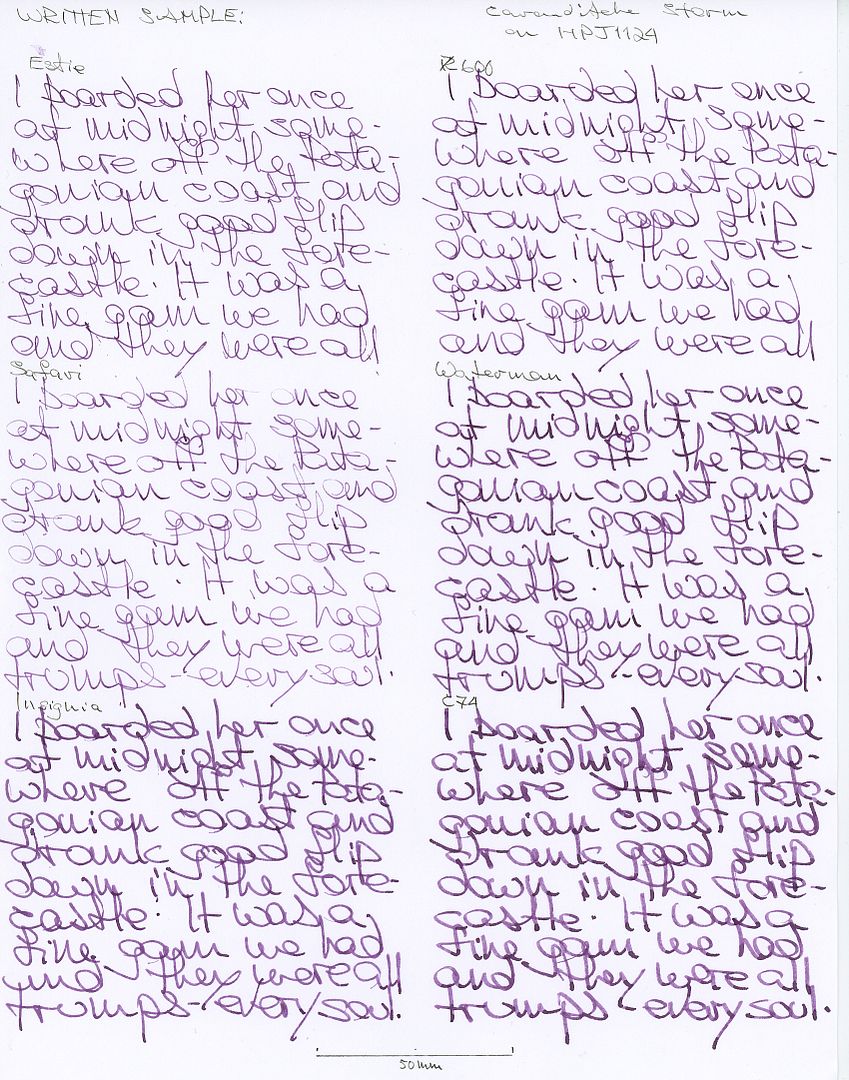 WRITTEN SAMPLE:
cavanditche storm
on HPJ1124
Estie
I boarded her once
at midnight some-
where off the Pata-
gonian coast and
drank good flip
down in the fore-
castle. It was a
fine gam we had
and they were all
Safari
I boarded her once
at midnight some-
where off the Pata-
gonian coast and
drank good flip
down in the fore-
castle. It was a
fine gam we had
and they were all
trumps - every soul.
Insignia
I boarded her once
at midnight some-
where off the Pata-
gonian coast and
drank good flip
down in the fore-
castle. It was a
fine gam we had
and they were all
trumps - every soul.
600
I boarded her once
at midnight, some-
where off the Pata-
gonian coast and
drank good flip
down in the fore-
castle. It was a
fine gam we had
and they were all
Waterman
I boarded her once
at midnight some-
where off the Pata-
gonian coast and
drank good flip
down in the fore-
castle. It was a
fine gam we had
and they were all
trumps - every soul.
C74
I boarded her once
at midnight some-
where off the Pata-
gonian coast and
drank good flip
down in the fore-
castle. It was a
fine gam we had
and they were all
trumps - every soul.
50mm